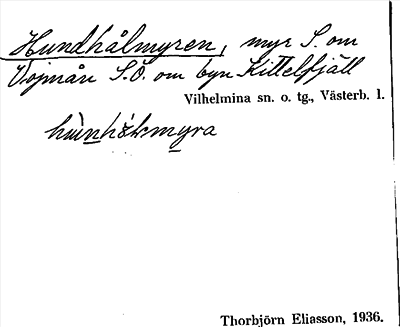 Hundhålmyren, myr S. om
Vojmån S.Ö. om byn Kittelfjäll
Vilhelmina sn. o. tg., Västerb. l.
Thorbjörn Eliasson, 1936.